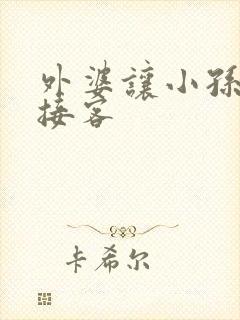 外婆讓小孫
接客
卡希尔